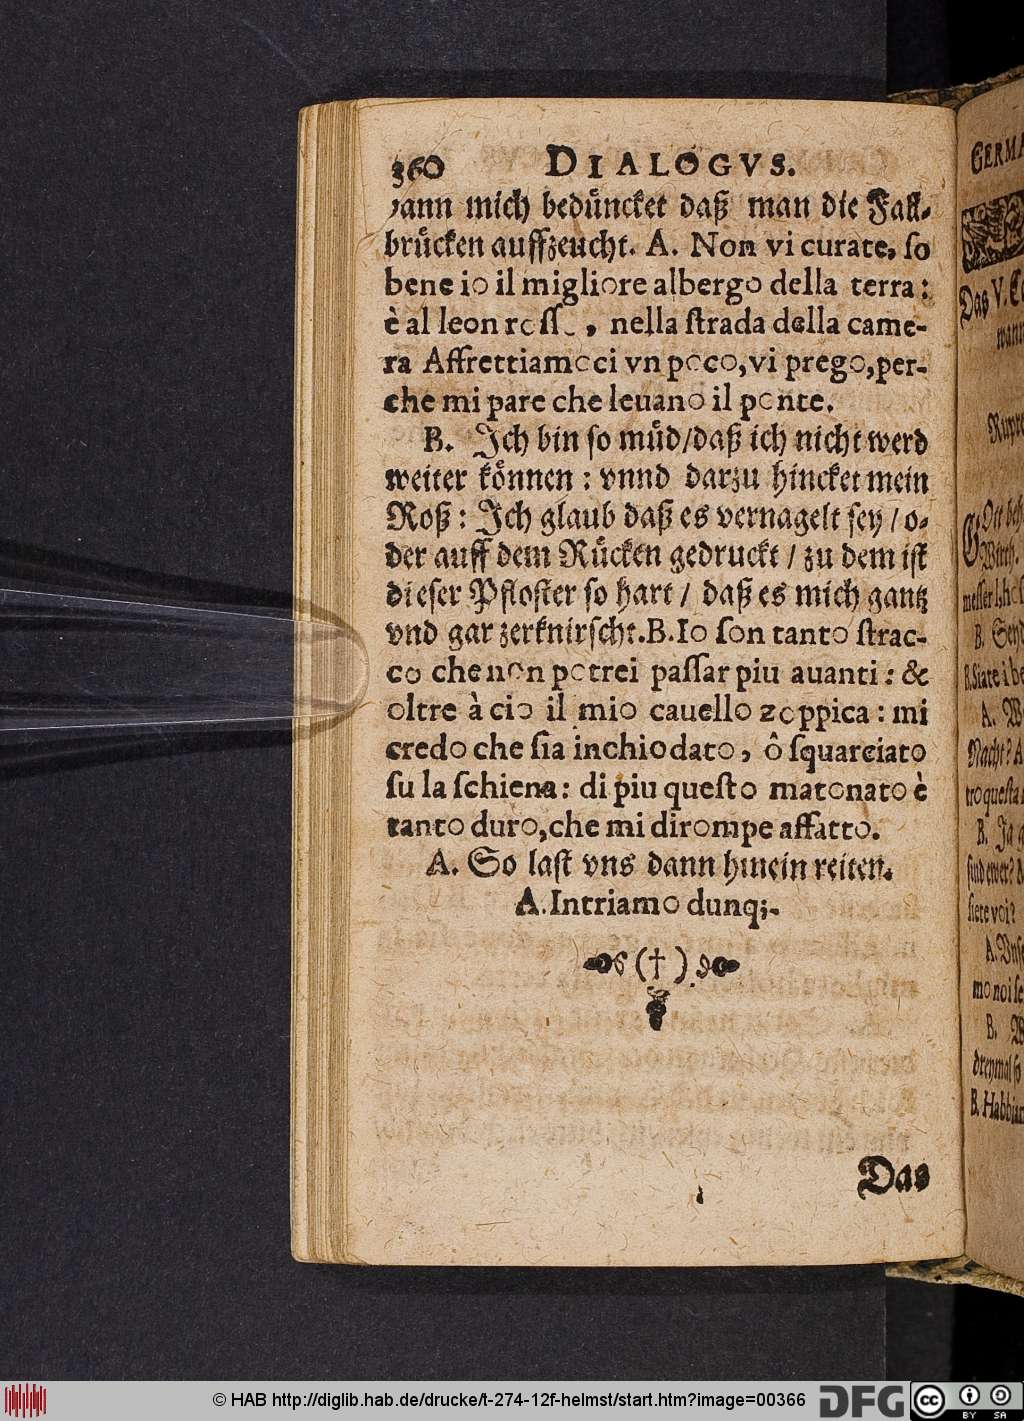 360 DIALOGVS.
dann mich bedůncket daß man die Fall-
brůcken auffzeucht. A. Non vi curate, ſo
bene io il migliore albergo della terra:
è al leon roſſ , nella ſtrada della came-
ra Affrettiamoci vn poco, vi prego, per-
che mi pare che leuano il ponte.
B. Ich bin ſo můd/daß ich nicht werd
weiter kőnnen: vnnd darzu hincket mein
Roß: Ich glaub daß es vernagelt ſey / o-
der auff dem Růcken gedruckt / zu dem iſt
dieſer Pfloſter ſo hart / daß es mich gantz
vnd gar zerknirſcht. B. Io ſon tanto ſtrac-
co che non potrei paſſar piu auanti: &
oltre à cio il mio cauello zoppica: mi
credo che ſia inchiodato, ô ſquarciato
ſu la ſchiena: di piu queſto matonato è
tanto duro, che mi dirompe affatto.
A. So laſt vns dann hinein reiten.
A. Intriamo dunq;.
(†)
Das
GERMA
Das V.
B.
A.
Nacht? A
B. Ja
ſiete voi?
mo noi ſe
B.
B. Habbiam
© HAB http://diglib.hab.de/drucke/t-274-12f-helmst/start.htm?image=00366
DFG
cc
BY SA